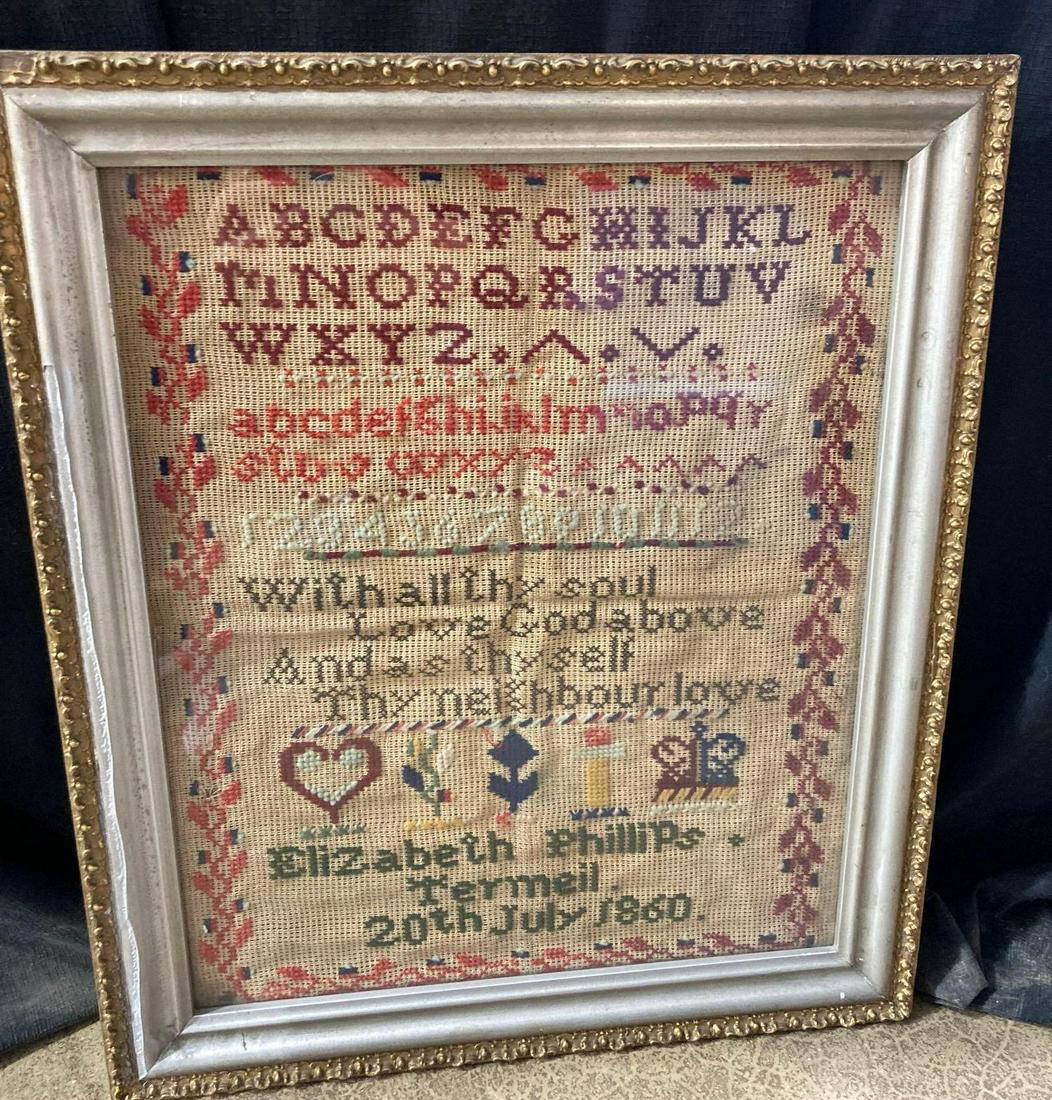 ABCDEFGHIJKL
MNOPQRSTUV
WXYZ.
abcdefghijklmnopqr
stuvwxyz
1 2 3 4 5 6 7 8 9 10 11 12.
With all thy soul
Love God above
And as thyself
Thy neighbour love
Elizabeth Phillips
Termeil.
20th July 1860.